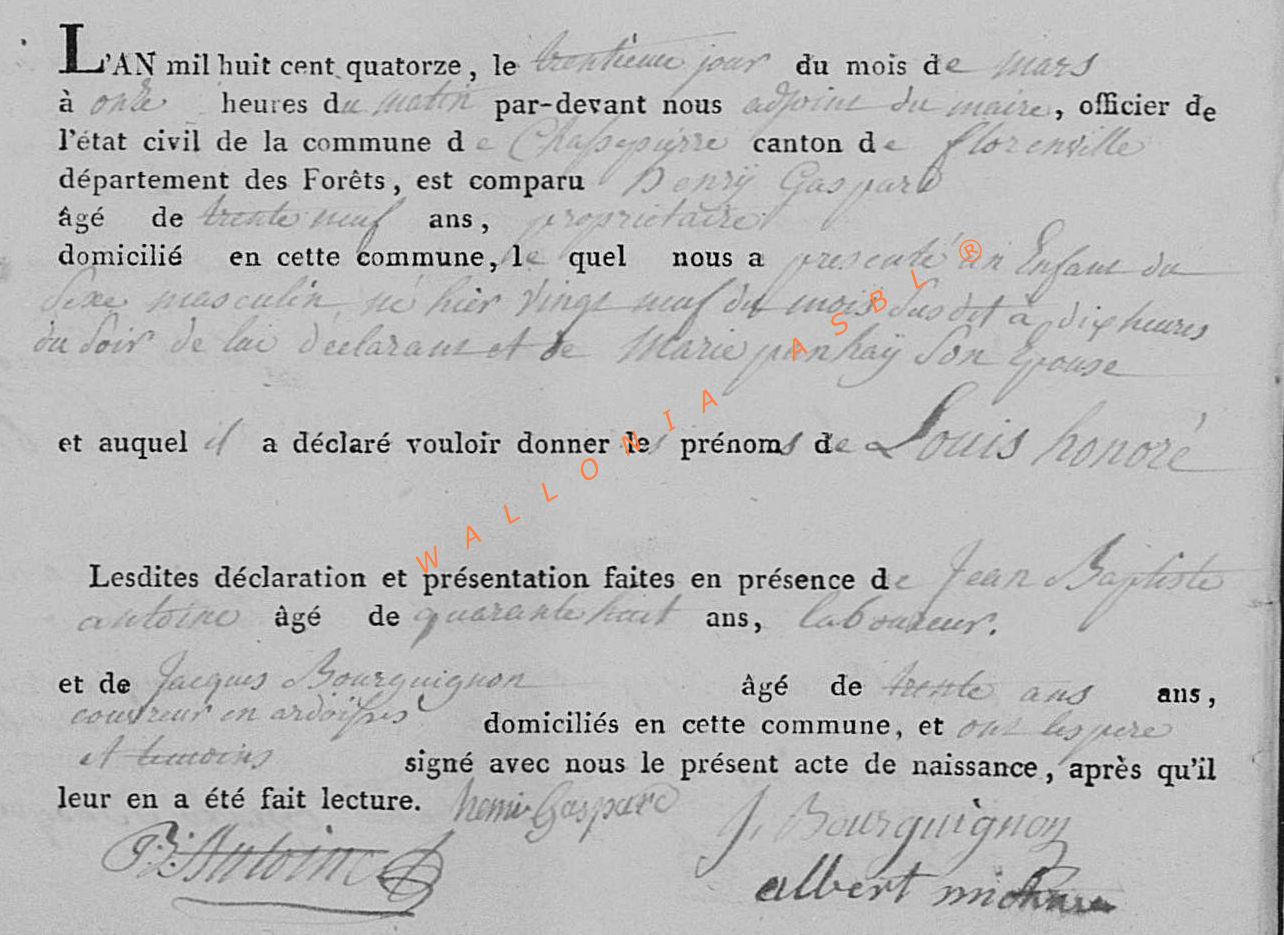 L'AN mil huit cent quatorze, le trentieme jour du mois de mars
à onze heures du matin par-devant nous adjoint du maire, officier de
l'état civil de la commune de Chassepierre canton de florenville
département des Forêts, est comparu henrÿ Gaspard
âgé de trente neuf ans, propriétaire
domicilié en cette commune, le quel nous a presenté un Enfant du
Sexe masculin, né hier Vingt neuf du mois Susdit à dix heures
du Soir de lui Déclarant et de Marie ponhaÿ Son Epouse
et auquel il a déclaré vouloir donner les prénoms de Louis honoré
Lesdites déclaration et présentation faites en présence de Jean Baptiste
antoine âgé de quarante huit ans, laboureur.
et de Jacques Bourguignon âgé de trente ans ans,
couvreur en ardoises domiciliés en cette commune, et ont les pere
et temoins signé avec nous le présent acte de naissance, après qu'il
leur en a été fait lecture. henri Gaspard
J. Bourguignon
Antoine
albert
WALLONIA ASBL ®